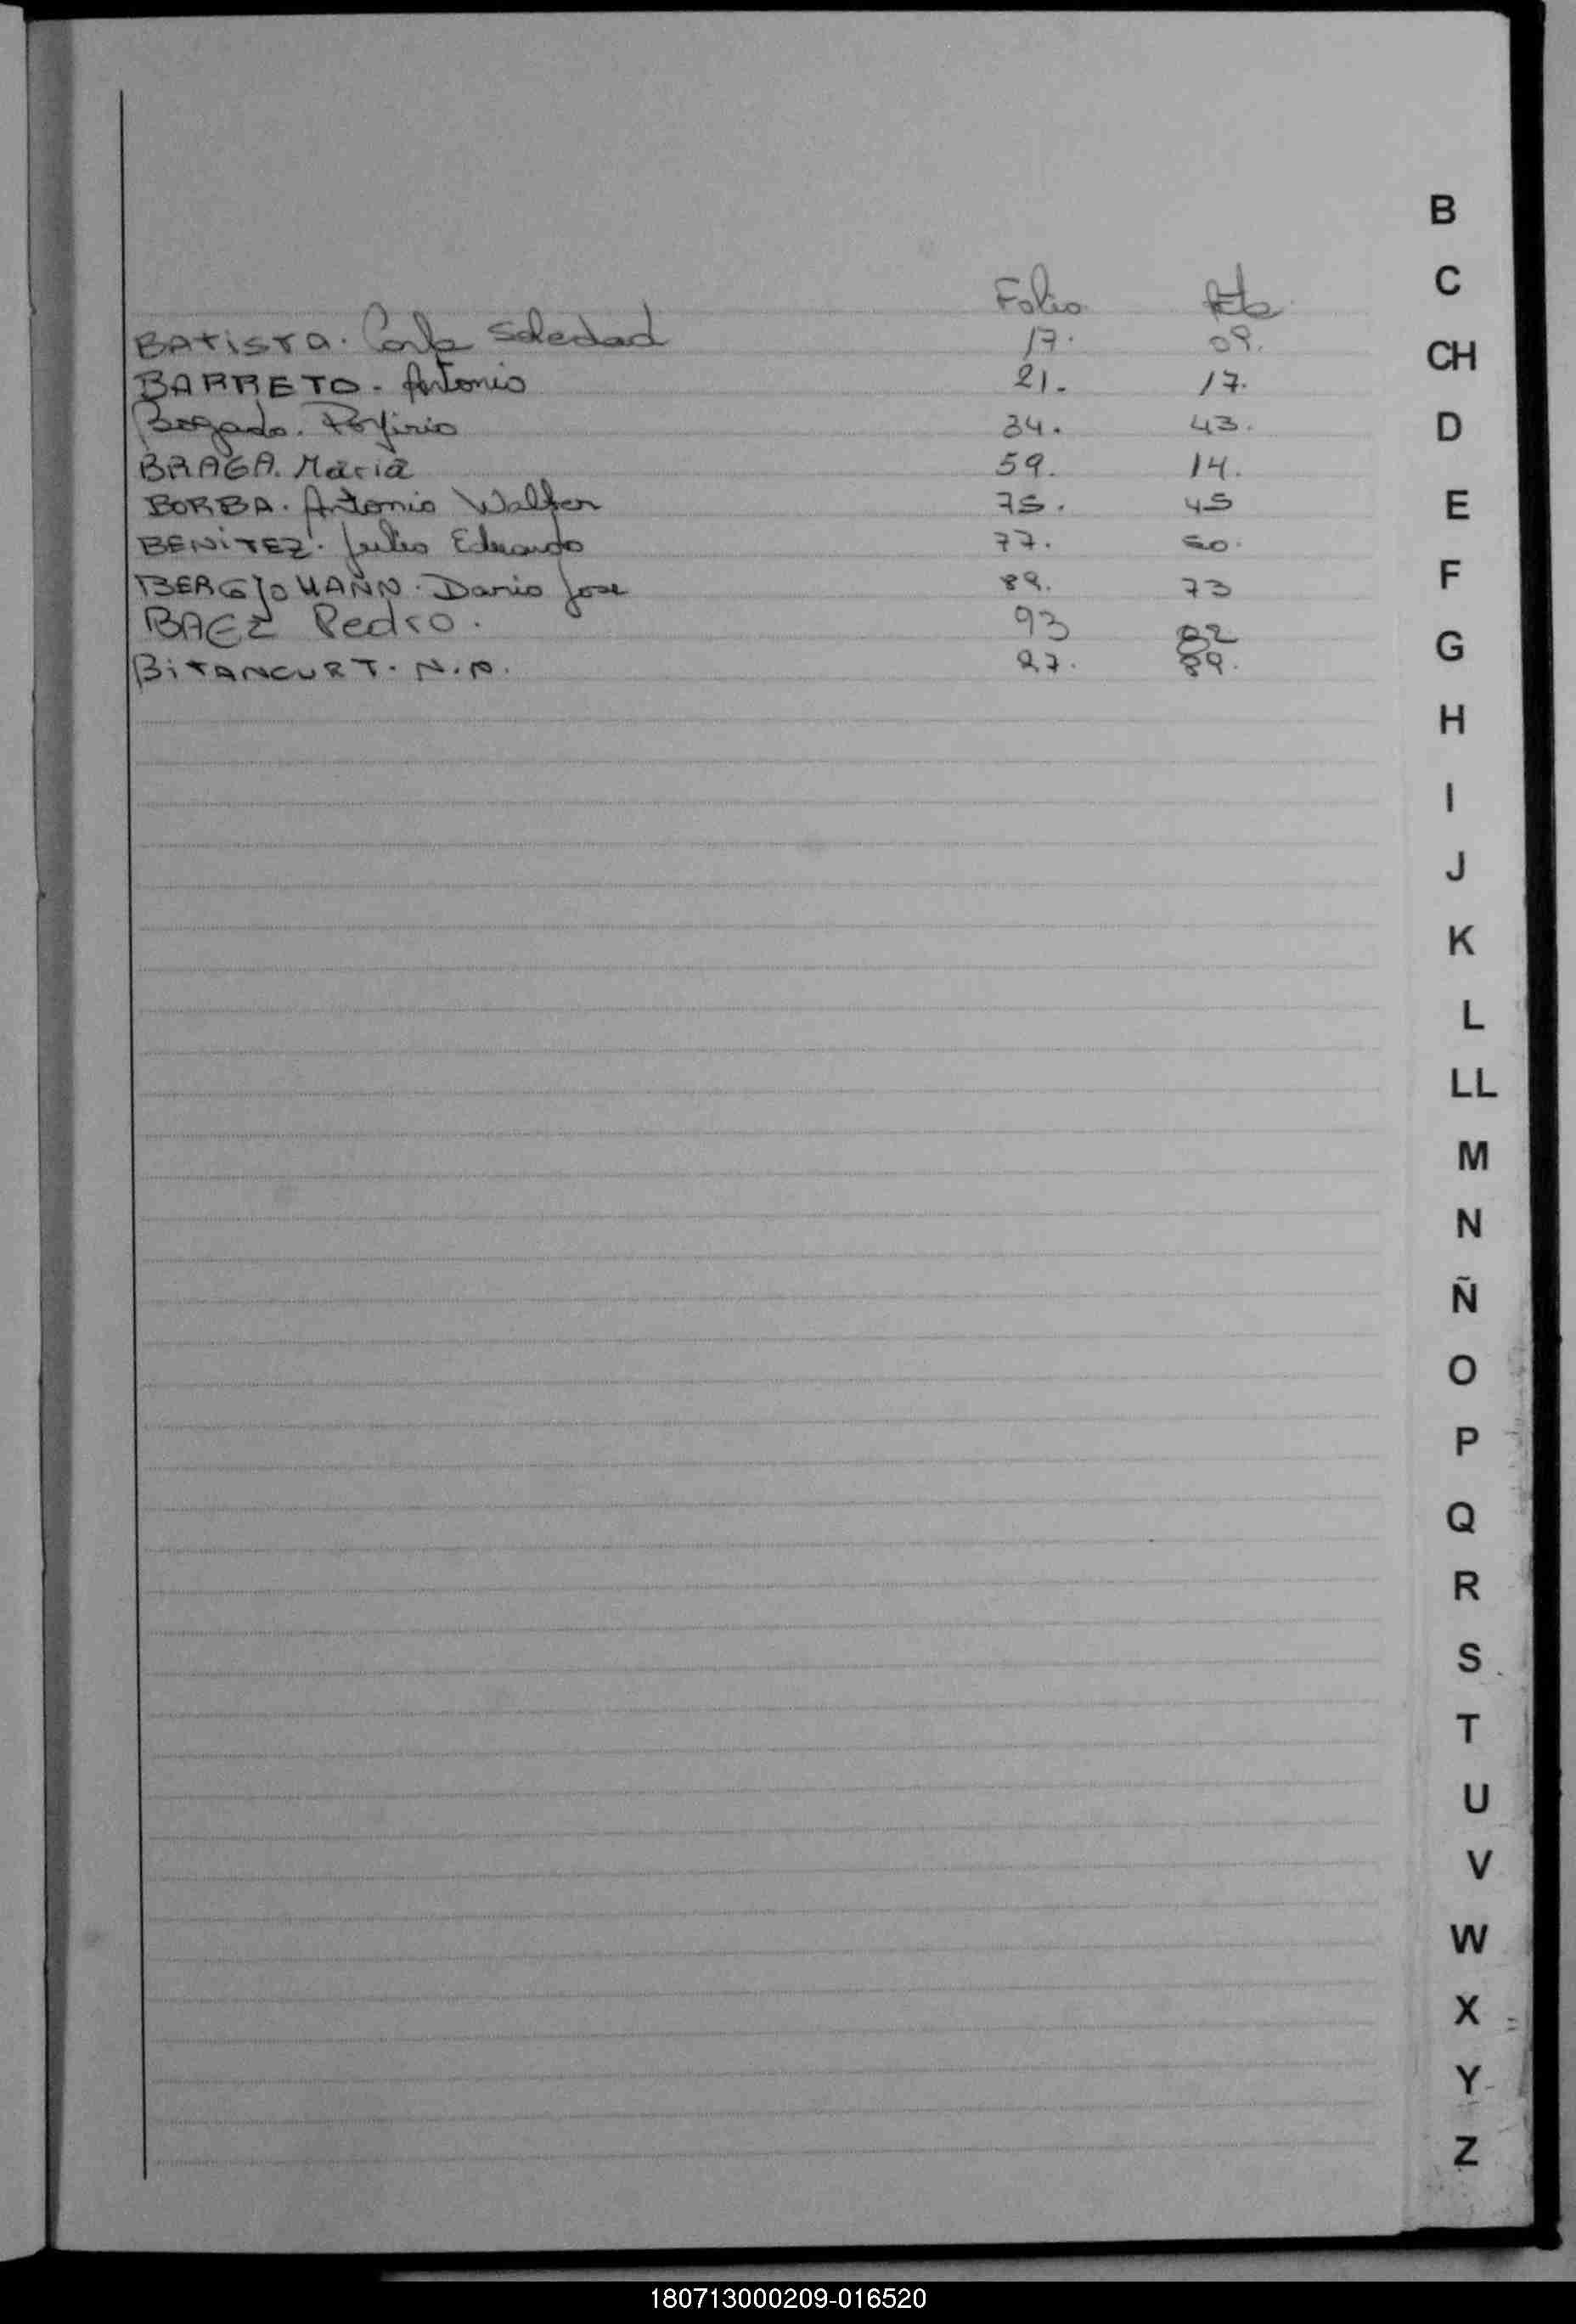 B
C
Folio Acta
BATISTA. Carla Soledad 17. 09.
CH
BARRETO - Antonio 21. 17.
Bogado. Porfirio 34. 43.
D
BRAGA. Maria 59. 14.
BORBA. Antonio Walter 75. 45
E
BENITEZ. Julio Eduardo 77. 50.
F
BERGJOHANN. Dario Jose 89. 73
BAEZ Pedro. 93 82
G
BITANCURT. N.N. 27. 89.
H
I
J
K
L
LL
M
N
Ñ
O
P
Q
R
S
T
U
V
W
X
Y
Z
180713000209-016520